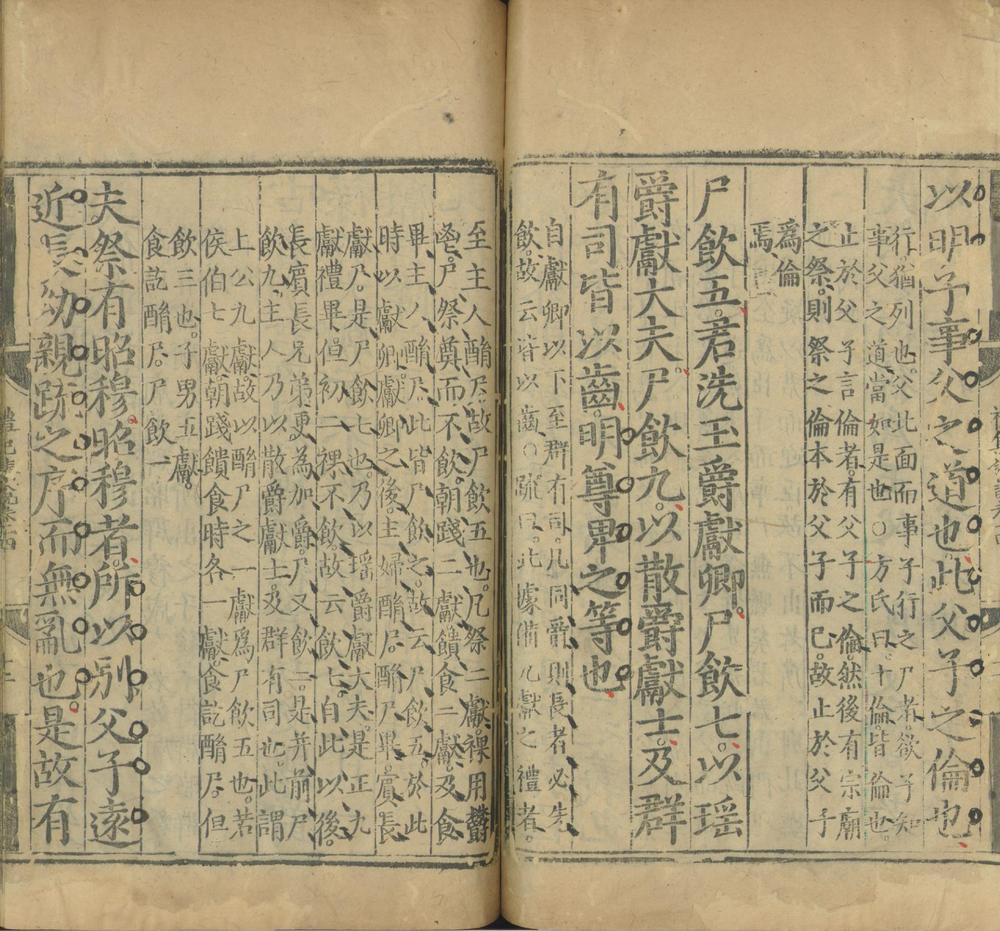 以明子事父之道也此父子之倫也
行猶列也父北面而事子行之尸者欲子知
事父之道當如是也○方氏曰十倫皆倫也
止於父子言倫者有父子之倫然後有宗廟
之祭則祭之倫本於父子而已故止於父子
爲倫
焉
尸飲五君洗玉爵獻卿尸飲七以瑶
爵獻大夫尸飲九以散爵獻士及群
有司皆以齒明尊卑之等也
自獻卿以下至群有司凡同爵則長者必先
飲故云皆以齒○疏曰此據備九獻之禮者
至主人酳尸故尸飲五也凡祭二獻祼用鬱
鬯尸祭奠而不飲朝踐二獻饋食二獻及食
畢主人酳尸此皆尸飲之故云尸飲五於此
時以獻卿獻卿之後主婦酳尸酳尸畢賓長
獻尸是尸飲七也乃以瑶爵獻大夫是正九
獻禮畢但初二祼不飲故云飲七自此以後
長賓長兄弟更爲加爵尸又飲二是并前尸
飲九主人乃以散爵獻士及群有司也此謂
上公九獻故以酳尸之一獻爲尸飲五也若
侯伯七獻朝踐饋食時各一獻食訖酳尸但
飲三也子男五獻
食訖酳尸尸飲一
夫祭有昭穆昭穆者所以别父子遠
近長幼親䟽之序而無亂也是故有